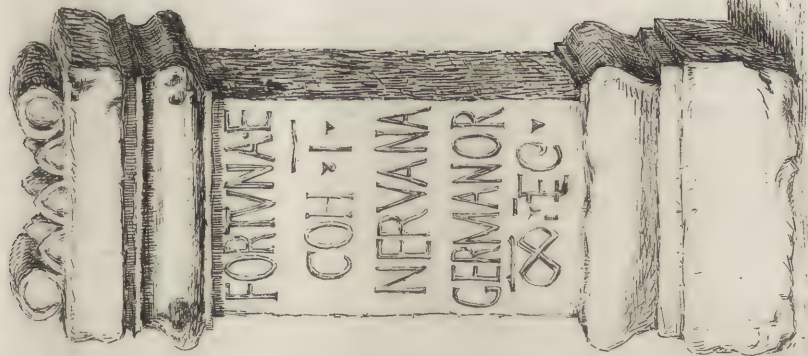 FORTVNAE
COH · I ·
NERVANA
GERMANOR
∞ · EQ ·